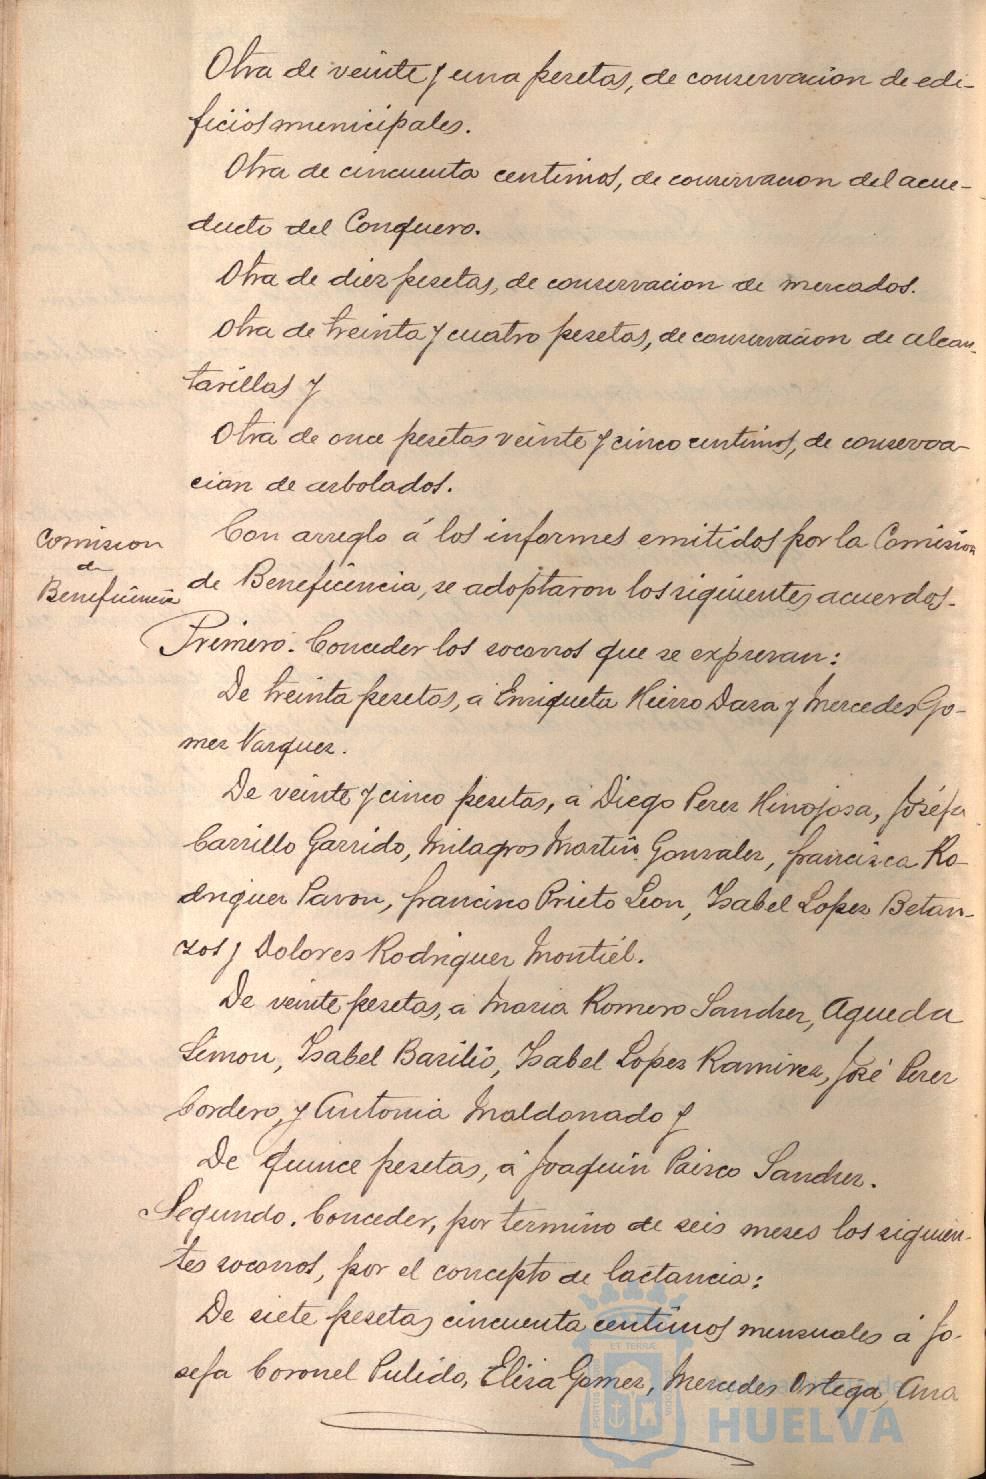 Otra de veinte y una pesetas, de conservacion de edi-
ficios municipales.
Otra de cincuenta centimos, de conservacion del acue-
ducto del Conquero.
Otra de diez pesetas, de conservacion de mercados.
Otra de treinta y cuatro pesetas, de conservacion de alcan-
tarillas y
Otra de once pesetas veinte y cinco centimos, de conserva-
cion de arbolados.
Comision
de
Beneficencia
Con arreglo á los informes emitidos por la Comision
de Beneficencia, se adoptaron los siguientes acuerdos.
Primero. Conceder los socorros que se expresan:
De treinta pesetas, á Enriqueta Hierro Daza y Mercedes Go-
mez Vazquez.
De veinte y cinco pesetas, á Diego Perez Hinojosa, Joséfa
Carrillo Garrido, Milagros Martin Gonzalez, Francisca Ro-
driguez Pavon, Francisco Prieto Leon, Isabel Lopez Betan-
zos y Dolores Rodriguez Montiel.
De veinte pesetas, á Maria Romero Sanchez, Agueda
Simon, Isabel Basilio, Isabel Lopez Ramirez, José Perez
Cordero, y Antonia Maldonado y
De quince pesetas, á Joaquin Sanchez.
Segundo. Conceder, por termino de seis meses los siguien-
tes socorros, por el concepto de lactancia:
De siete pesetas cincuenta centimos mensuales á Jo-
sefa Coronel Pulido, Elisa Gomez, Mercedes Ortega, Ana
Ayuntamiento de
HUELVA